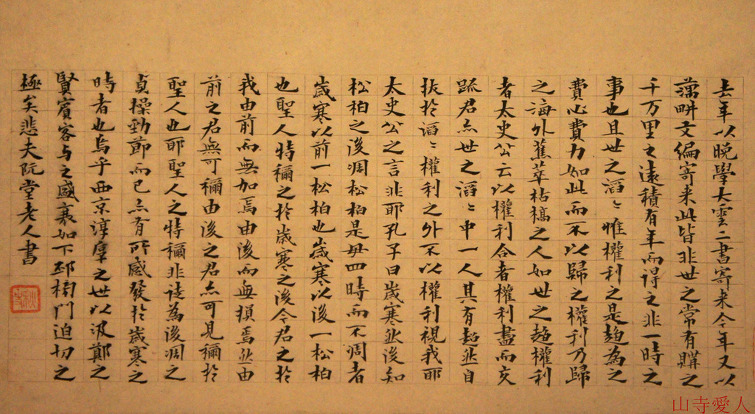 去年以晚學大雲二書寄來今年又以
藕畊文編寄來此皆非世之常有購之
千万里之遠積有年而得之非一時之
事也且世之滔〻惟權利之是趨為之
費心費力如此而不以歸之權利乃歸
之海外蕉萃枯槁之人如世之趨權利
者太史公云以權利合者權利盡而交
踈君亦世之滔〻中一人其有超然自
拔於滔〻權利之外不以權利視我耶
太史公之言非耶孔子曰歲寒然後知
松柏之後凋松柏是毋四時而不凋者
歲寒以前一松柏也歲寒以後一松柏
也聖人特稱之於歲寒之後今君之於
我由前而無加焉由後而無損焉然由
前之君無可稱由後之君亦可見稱於
聖人也耶聖人之特稱非徒為後凋之
貞操勁節而已亦有所感發於歲寒之
時者也烏乎西京淳厚之世以汲鄭之
賢賓客与之盛衰如下邳榜門迫切之
極矣悲夫阮堂老人書
山寺愛人